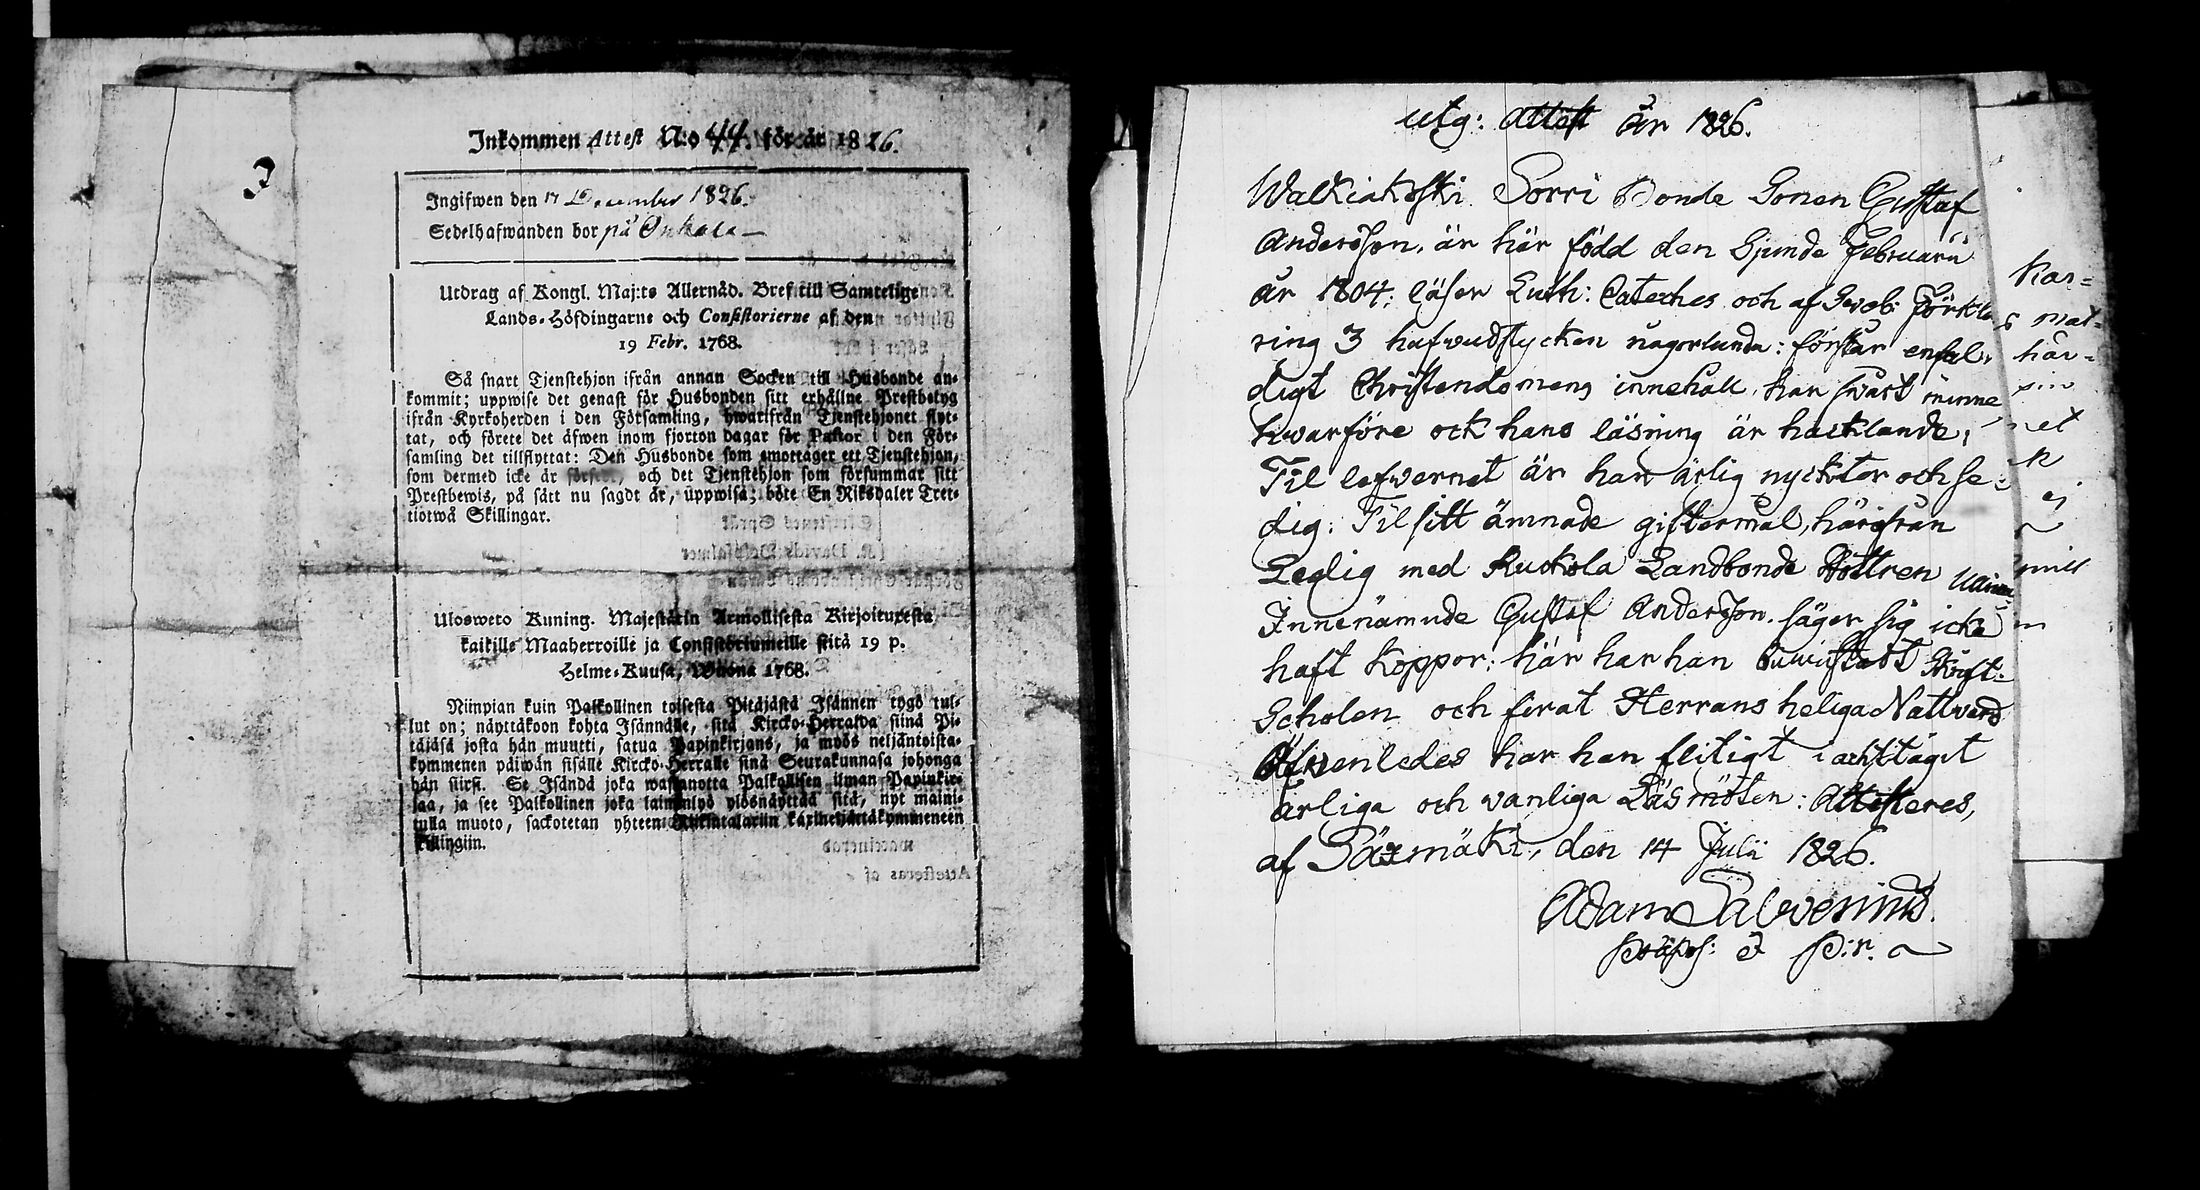 Inkommen Attest N:o 44. för år 1826.
Ingifwen den 17 December 1826.
Sedelhafwanden bor på Onkala —
Utdrag af Kongl. Maj:ts Allernåd. Bref till Samtelige
Lands-Höfdingarne och Consistorierne af den
19 Febr. 1768.
Så snart Tjenstehjon ifrån annan Socken till Husbonde an-
kommit; uppwise det genast för Husbonden sitt erhållne Prestbetyg
ifrån Kyrkoherden i den Församling, hwarifrån Tjenstehjonet flyt-
tat, och förete det äfwen inom fjorton dagar för Pastor i den För-
samling det tillflyttat: Den Husbonde som emottager ett Tjenstehjon,
som dermed icke är försedt, och det Tjenstehjon som försummar sitt
Prestbewis, på sätt nu sagdt är, uppwisa; böte En Riksdaler Tret-
tiotwå Skillingar.
Ulosweto Kuning. Majestätin Armollisesta Kirjoituxesta
kaikille Maaherroille ja Consistoriumeille siitä 19 p.
Helme-Kuusa, Wuona 1768.
Niinpian kuin Palkollinen toisesta Pitäjästä Isännen tygö tul-
lut on; näyttäkoon kohta Isännälle, sitä Kircko-Herralda siinä Pi-
täjäsä josta hän muutti, satua Papinkirjans, ja myös neljäntoista-
kymmenen päiwän sisälle Kircko-Herralle sinä Seurakunnasa johonga
hän siirsi. Se Isändä joka wastanotta Palkollisen ilman Papinkir-
jaa, ja see Palkollinen joka laiminlyö ylösnäyttää sitä, nyt maini-
tulla muoto, sackotetan yhteen Riikintalariin kaxineljättäkymmeneen
killingiin.
utg: Attest År 1826.
Walkiakoski Sorri Bonde Sonen Gustaf
Andersson, är här född den Sjunde Februarii
år 1804; läser Luth: Cateches och af Sweb: Förkla
ring 3 hufwudstycken någorlunda: förstår enfal-
digt Christendomens innehåll, har swårt minne
hwarföre ock hans läsning är hacklande;
Til lefwernet är han ärlig nyckter och se-
dig: Til sitt ämnade giftermål, härifrån
Ledig med Ruokola Landbonde Dottren
Innenämnde Gustaf Andersson. säger sig icke
haft Koppor: här har han biwistadt Skrift-
Scholen och firat Herrans heliga Nattward
Äfwenledes har han flitigt i akttagit
årliga och wanliga Läsmöten: Attesteres,
af Säxmäki, den 14 Julii 1826.
Adam Salwenius.
Präpos: & P:r.
Kar=
s mat=
här=
sin
net
k
ej
mitt